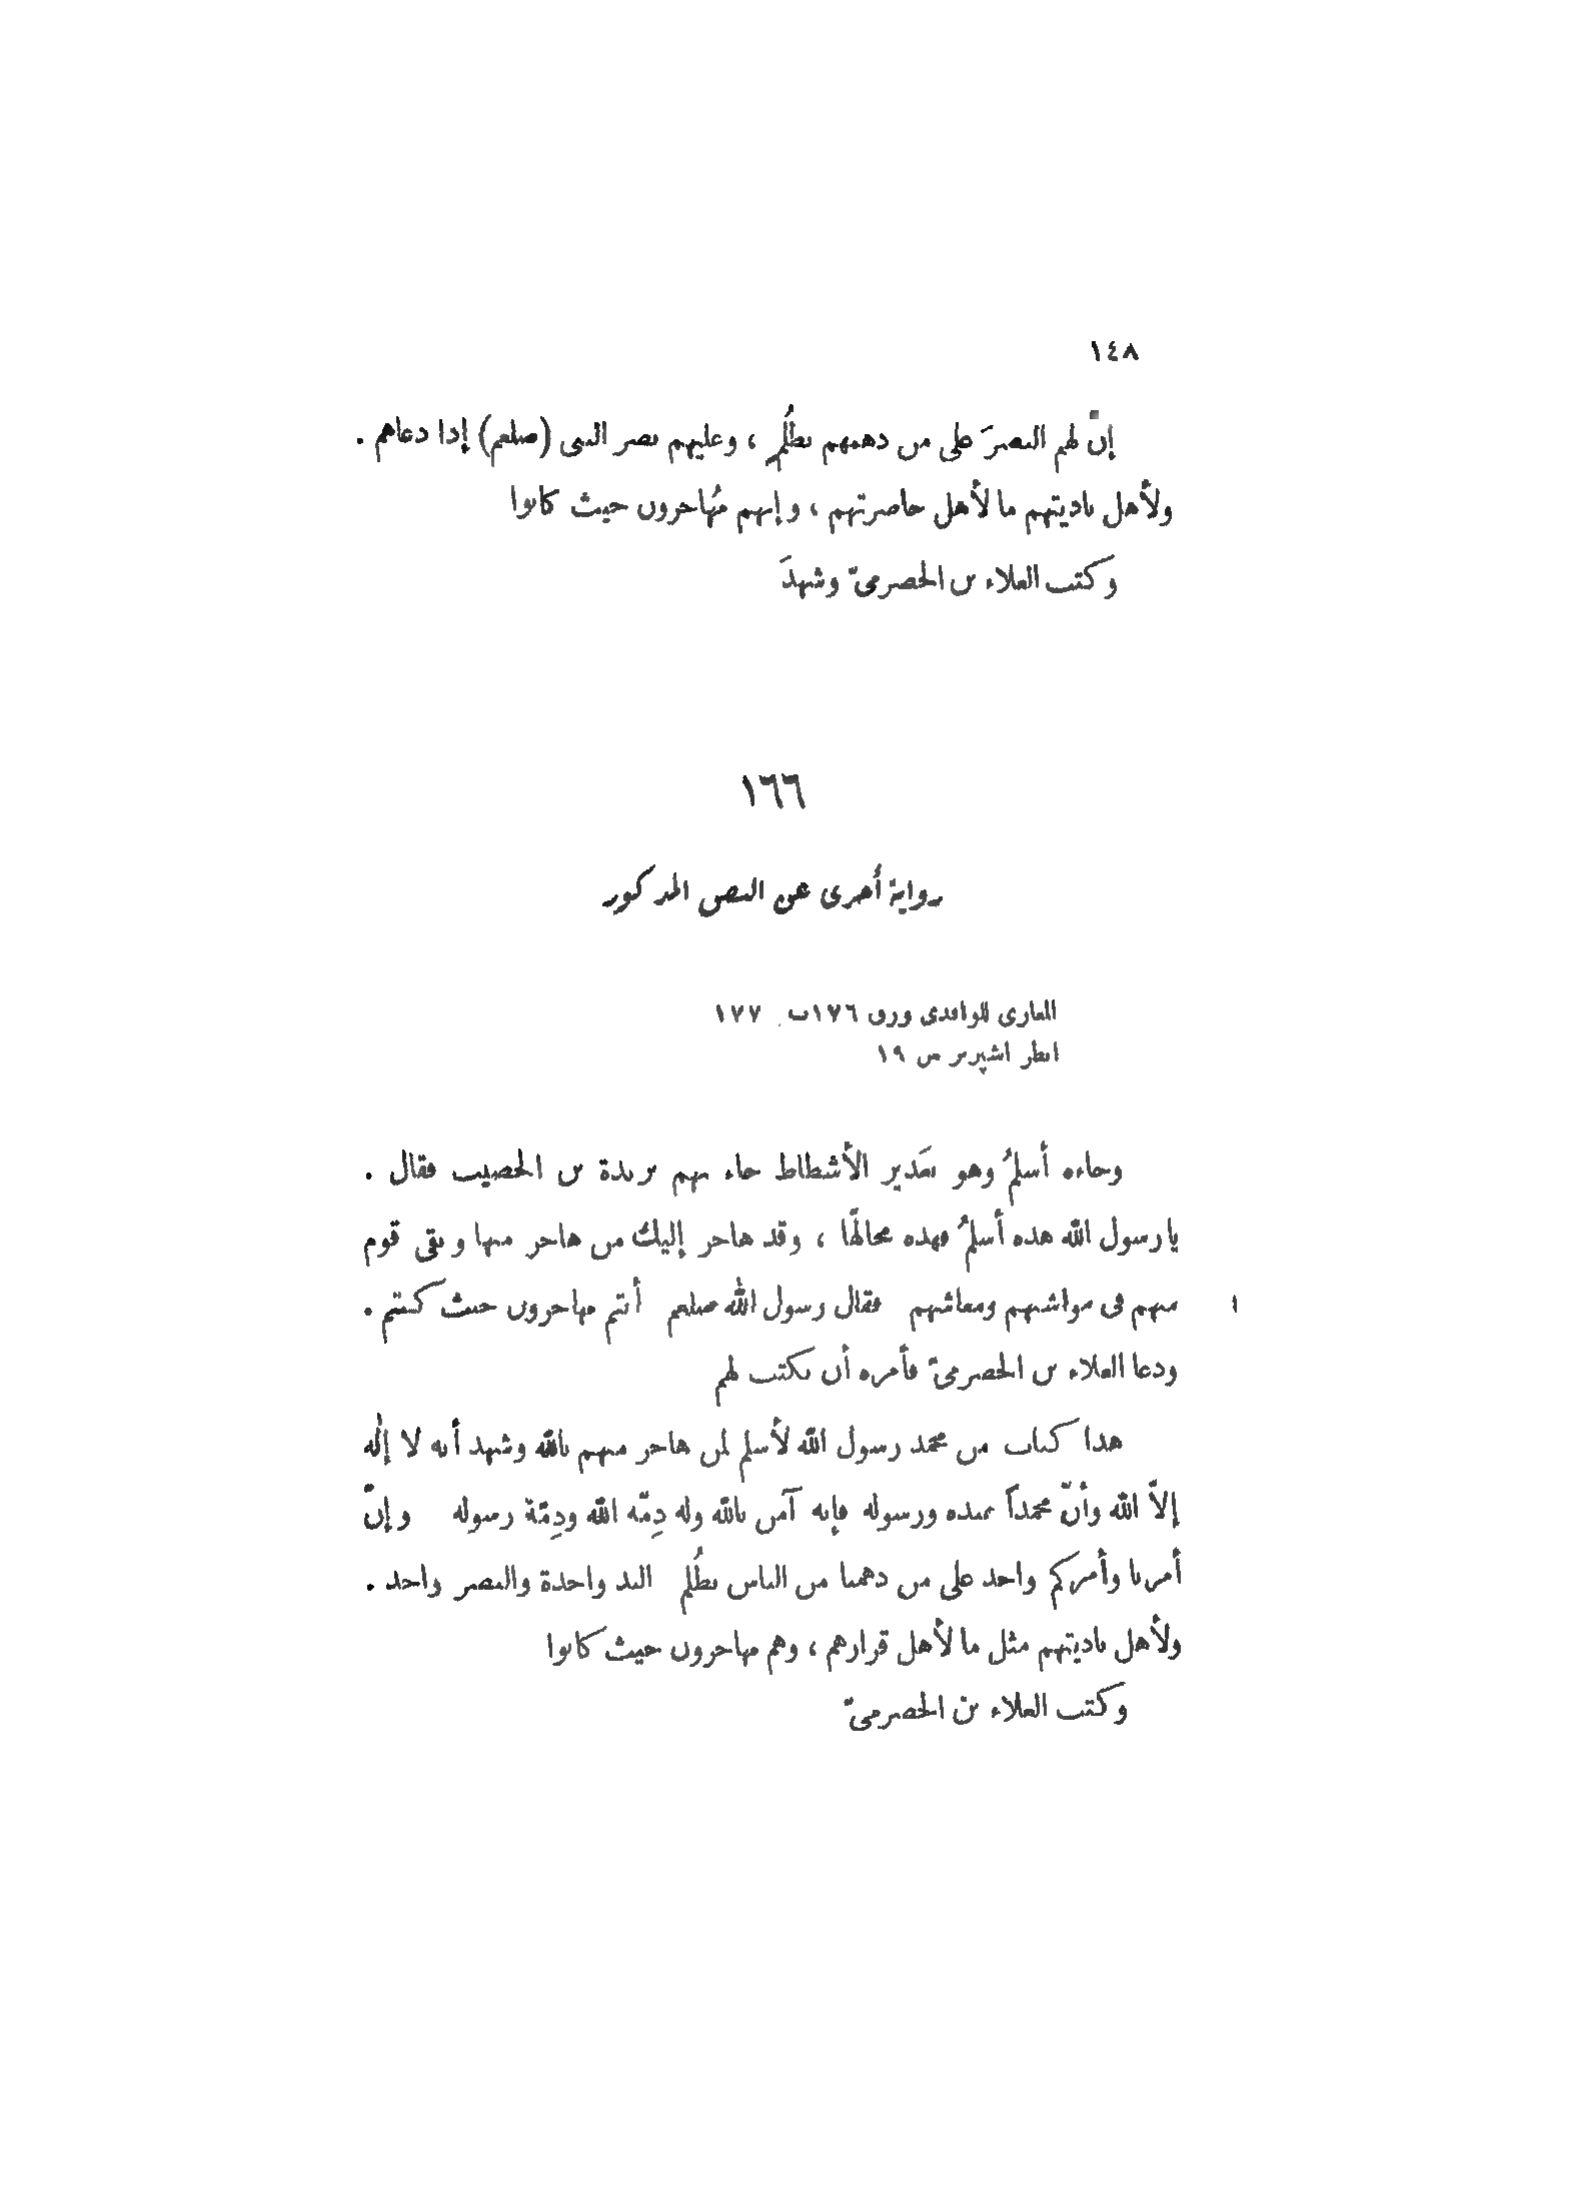 ١٤٨
إنّ لهم النصرَ على من دهمهم بظُلمٍ ، وعليهم نصر النبى (صلعم) إذا دعاهم .
ولأهل باديتهم ما لأهل حاضرتهم ، وإنهم مُهاجرون حيث كانوا
وكتب العلاء بن الحضرمىّ وشهدَ
١٦٦
رواية أخرى عن النص المذكور
المغازى للواقدى ورق ١٧٦ب ١٧٧
انظر اشپرنر ص ١٩
وجاءه أسلمُ وهو بغَدير الأشطاط جاء بهم بريدة بن الحصيب فقال .
يا رسول الله هذه أسلمُ فهذه محالهًا ، وقد هاجر إليك من هاجر منها وبقى قوم
منهم فى مواشيهم ومعاشهم فقال رسول الله صلعم أنتم مهاجرون حيث كنتم .
ودعا العلاء بن الحضرمىّ فأمره أن يكتب لهم
هذا كتاب من محمد رسول الله لأسلم لمن هاجر منهم بالله وشهد أنه لا إله
إلاّ الله وأنّ محمداً عبده ورسوله فإنه آمن بالله وله ذِمّة الله وذِمّة رسوله وإنّ
أمرنا وأمركم واحد على من دهمنا من الناس بظُلم اليد واحدة والنصر واحد .
ولأهل باديتهم مثل ما لأهل قرارهم ، وهم مهاجرون حيث كانوا
وكتب العلاء بن الحضرمىّ